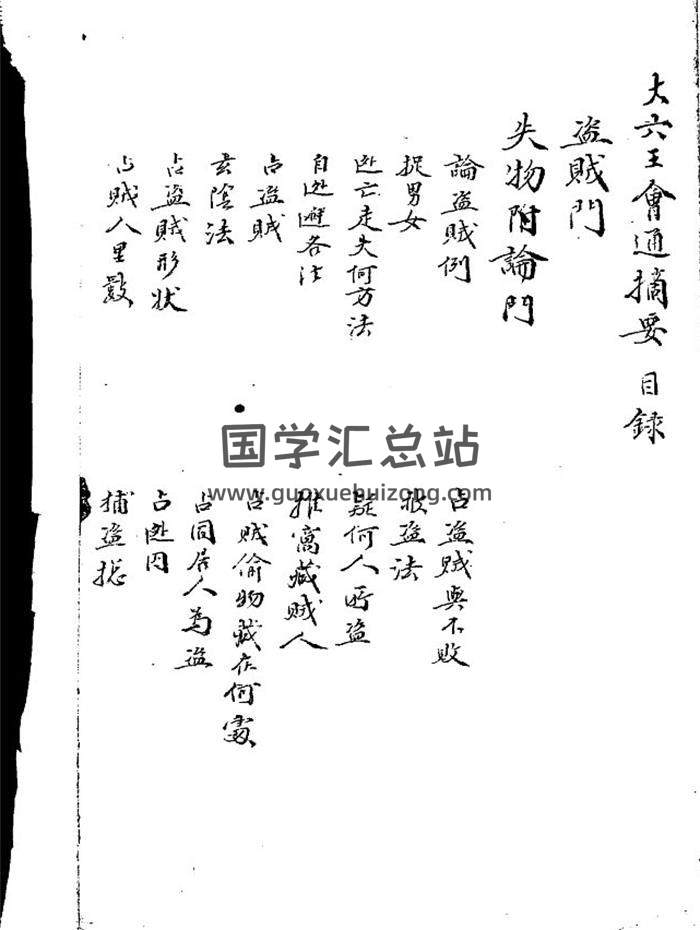 大六壬會通摘要 目録
盗賊門
失物附論門
論盗賊例
捉男女
逃亡走失何方法
自逃避各法
占盗賊
玄陰法
占盗賊形状
占賊人里數
占盗賊與不敗
被盗法
疑何人所盗
推窩藏賊人
占賊偷物藏在何處
占同居人為盗
占逃囚
捕盗
国学汇总站
www.guoxuebuizong.com